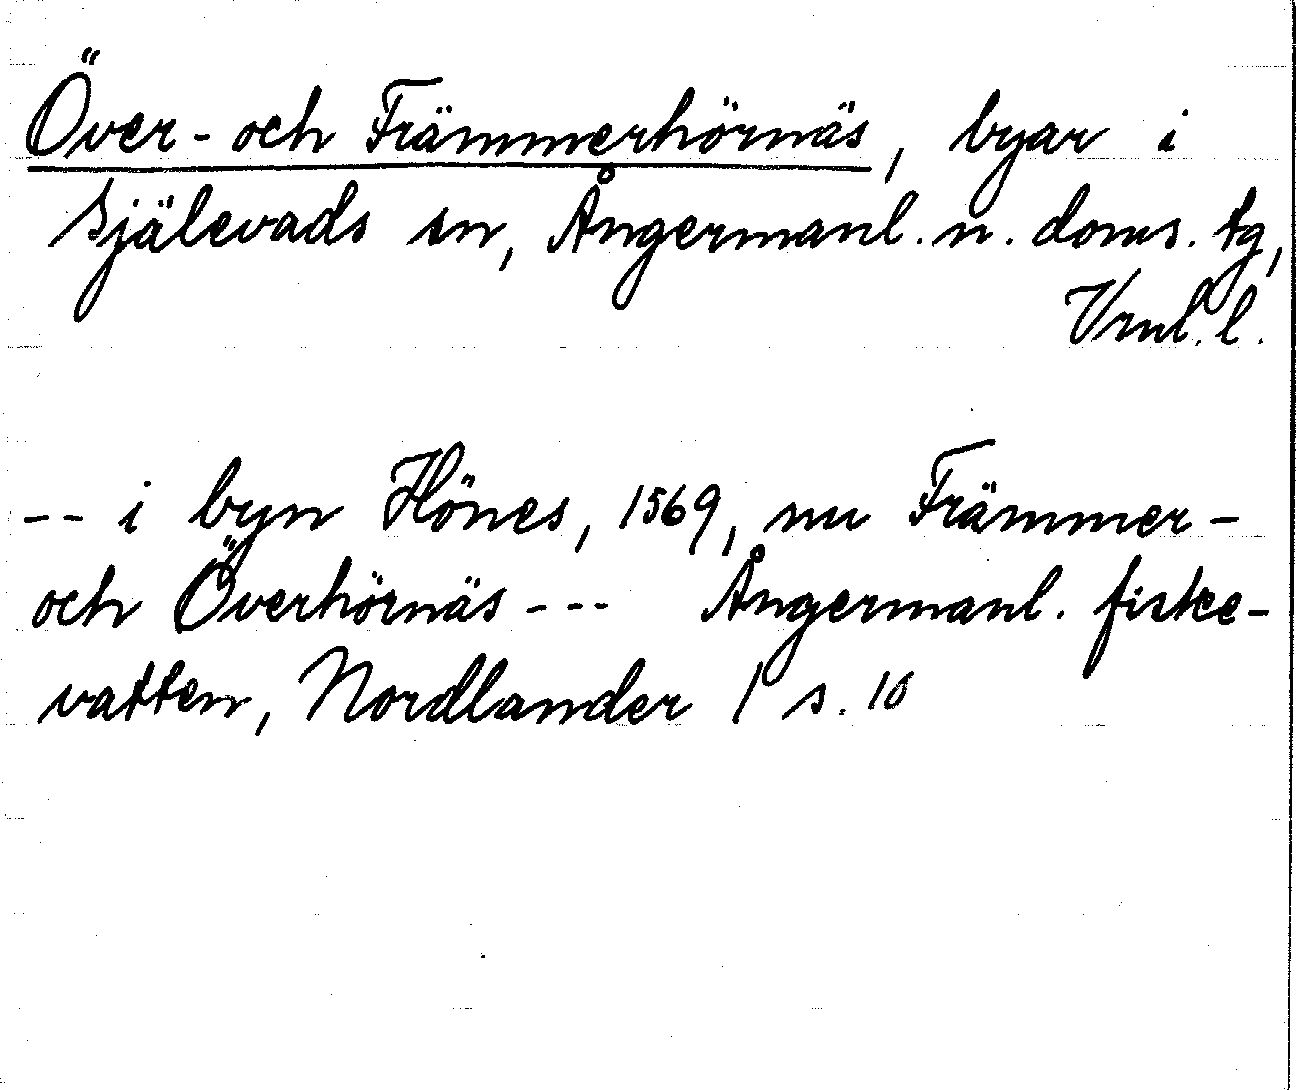 Över- och Främmerhörnäs, byar i
Själevads sn, Ångermanl. n. doms. tg,
Vrnl. l.
-- i byn Hönes, 1569, nu Främmer-
och Överhörnäs --- Ångermanl. fiske-
vatten, Nordlander 1 s. 10